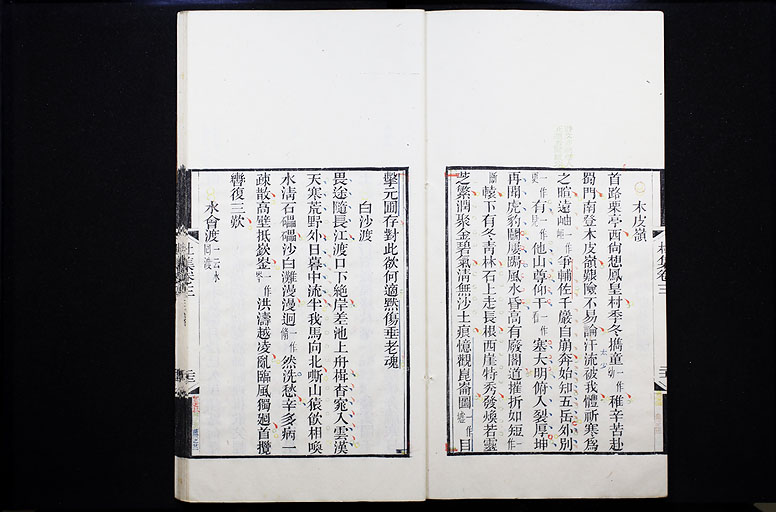 木皮嶺
首路栗亭西尚想鳳皇村季冬攜童一作幼稚辛苦赴
蜀門南登木皮嶺艱險不易論汗流被我體祈寒爲
之暄遠岫一作岫爭輔佐千巖自崩奔始知五岳外別
一作更有他山尊仰干一作看塞大明俯入裂厚坤
再聞虎豹鬭屢跼風水昏高有廢閣道摧折如短一作
斷轅下有冬青林石上走長根西崖特秀發煥若靈
芝繁潤聚金碧氣清無沙土痕憶觀崑崙圖一作墟目
擊元圃存對此欲何適黙傷垂老魂
白沙渡
畏途隨長江渡口下絶岸差池上舟楫杳窕入雲漢
天寒荒野外日暮中流半我馬向北嘶山猿飲相喚
水清石礧礧沙白灘漫漫迥一作翛然洗愁辛多病一
疎散高壁抵嶔崟一作洪濤越凌亂臨風獨廻首攬
轡復三歎
水會渡一云水回渡
杜集卷三